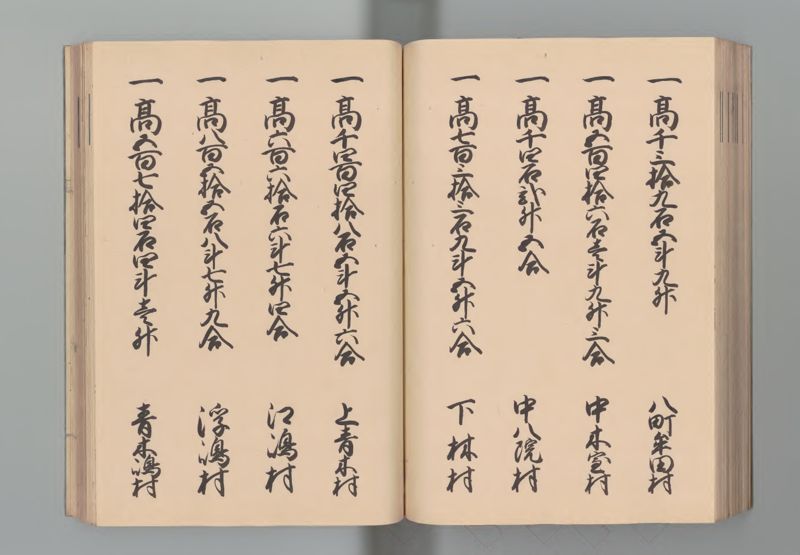 一高千三拾九石五斗九升 八町牟田村
一高五百四拾六石壱斗九升三合 中木室村
一高千四石弐升五合 中八院村
一高七百三拾三石九斗五升六合 下林村
一高千四百四拾八石五斗五升六合 上青木村
一高六百六拾石六斗七升四合 江嶋村
一高八百五拾五石八斗七升九合 浮嶋村
一高五百七拾四石四斗壱升 青木嶋村